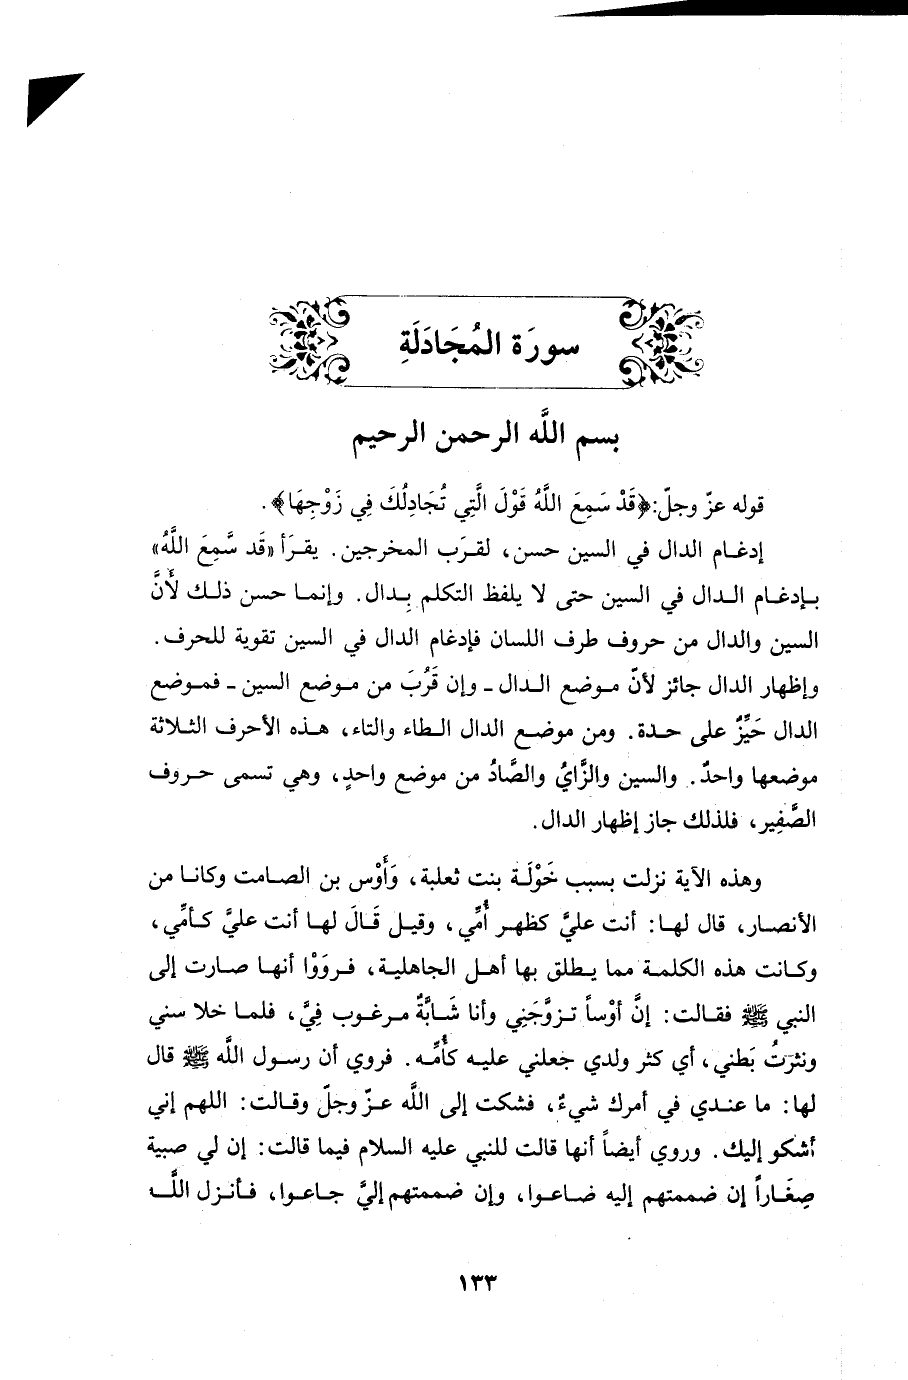 سورَة المُجَادَلَةِ
بسم اللَّه الرحمن الرحيم
قوله عزّ وجلّ:﴿قَدْ سَمِعَ اللَّهُ قَوْلَ الَّتِي تُجَادِلُكَ فِي زَوْجِهَا﴾.
إدغام الدال في السين حسن، لقرَب المخرجين. يقرَأ «قَد سَّمِعَ اللَّهُ»
بإدغام الدال في السين حتى لا يلفظ التكلم بِدال. وإنما حسن ذلك لأَنَّ
السين والدال من حروف طرف اللسان فإدغام الدال في السين تقوية للحرف.
وإظهار الدال جائز لأنّ موضع الدال ـ وإن قَرُبَ من موضع السين ـ فموضع
الدال حَيِّزٌ على حدة. ومن موضع الدال الطاء والتاء، هذه الأحرف الثلاثة
موضعها واحدٌ. والسين والزَّايُ والصَّادُ من موضع واحدٍ، وهي تسمى حروف
الصَّفِير، فلذلك جاز إظهار الدال.
وهذه الآية نزلت بسبب خَوْلَة بنت ثعلبة، وَأَوْس بن الصامت وكانا من
الأنصار، قال لها: أنت عليَّ كظهر أُمِّي، وقيل قَالَ لها أنت عليَّ كأمِّي،
وكانت هذه الكلمة مما يطلق بها أهل الجاهلية، فروَوْا أنها صارت إلى
النبي ﷺ فقالت: إنَّ أوْساً تزوَّجَنِي وأنا شَابَّةٌ مرغوب فِيَّ، فلما خلا سني
ونثرتُ بَطني، أي كثر ولدي جعلني عليه كأُمِّه. فروي أن رسول اللَّه ﷺ قال
لها: ما عندي في أمرك شيءٌ، فشكت إلى اللَّه عزّ وجلّ وقالت: اللهم إني
أشكو إليك. وروي أيضاً أنها قالت للنبي عليه السلام فيما قالت: إن لي صبية
صِغَاراً إن ضممتهم إليه ضاعوا، وإن ضممتهم إليَّ جاعوا، فأنزل اللَّه
١٣٣